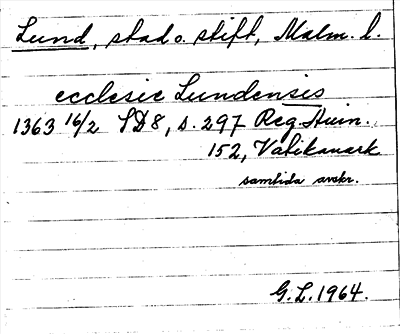 Lund, stad o. stift, Malm. l.
ecclesie Lundensis
1363 16/2 SD8, s. 297 Reg. Huin.
152, Vatikanark
samtida avskr.
G.L. 1964.